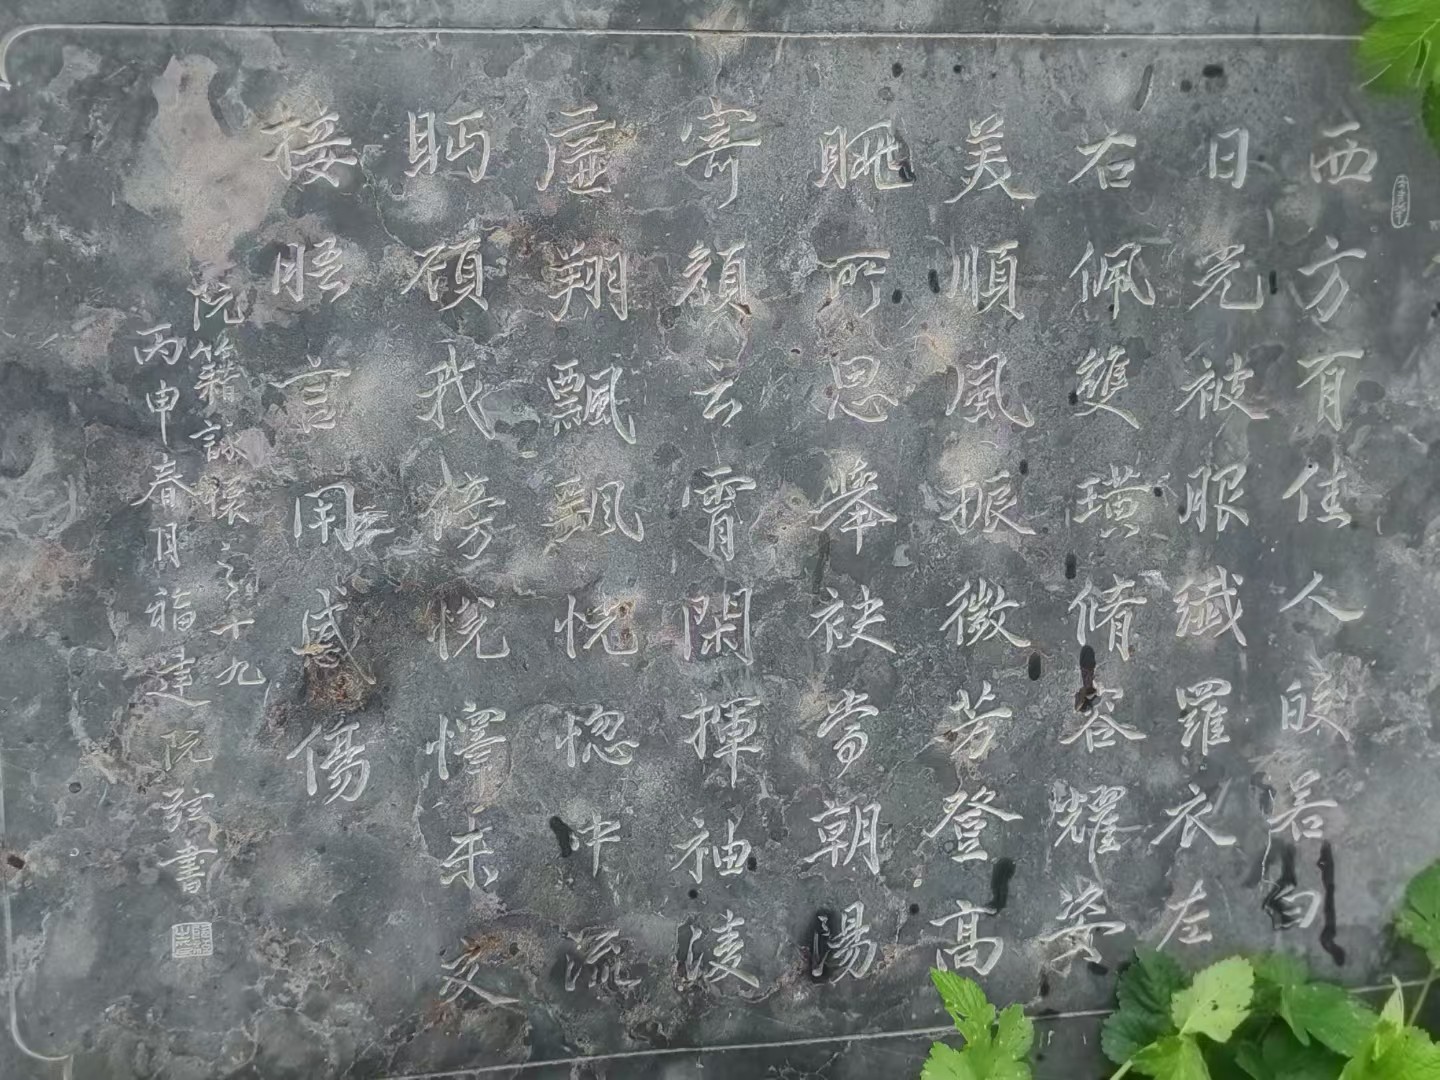 西方有佳人皎若白
日光被服纖羅衣左
右佩雙璜脩容耀姿
美順風振微芳登高
眺所思舉袂當朝陽
寄顏云霄閑揮袖淩
虛翔飄飄恍惚中流
眄顧我傍悅懌未交
接晤言用感傷
阮籍詠懷之十九
丙申春月福建阮弦書